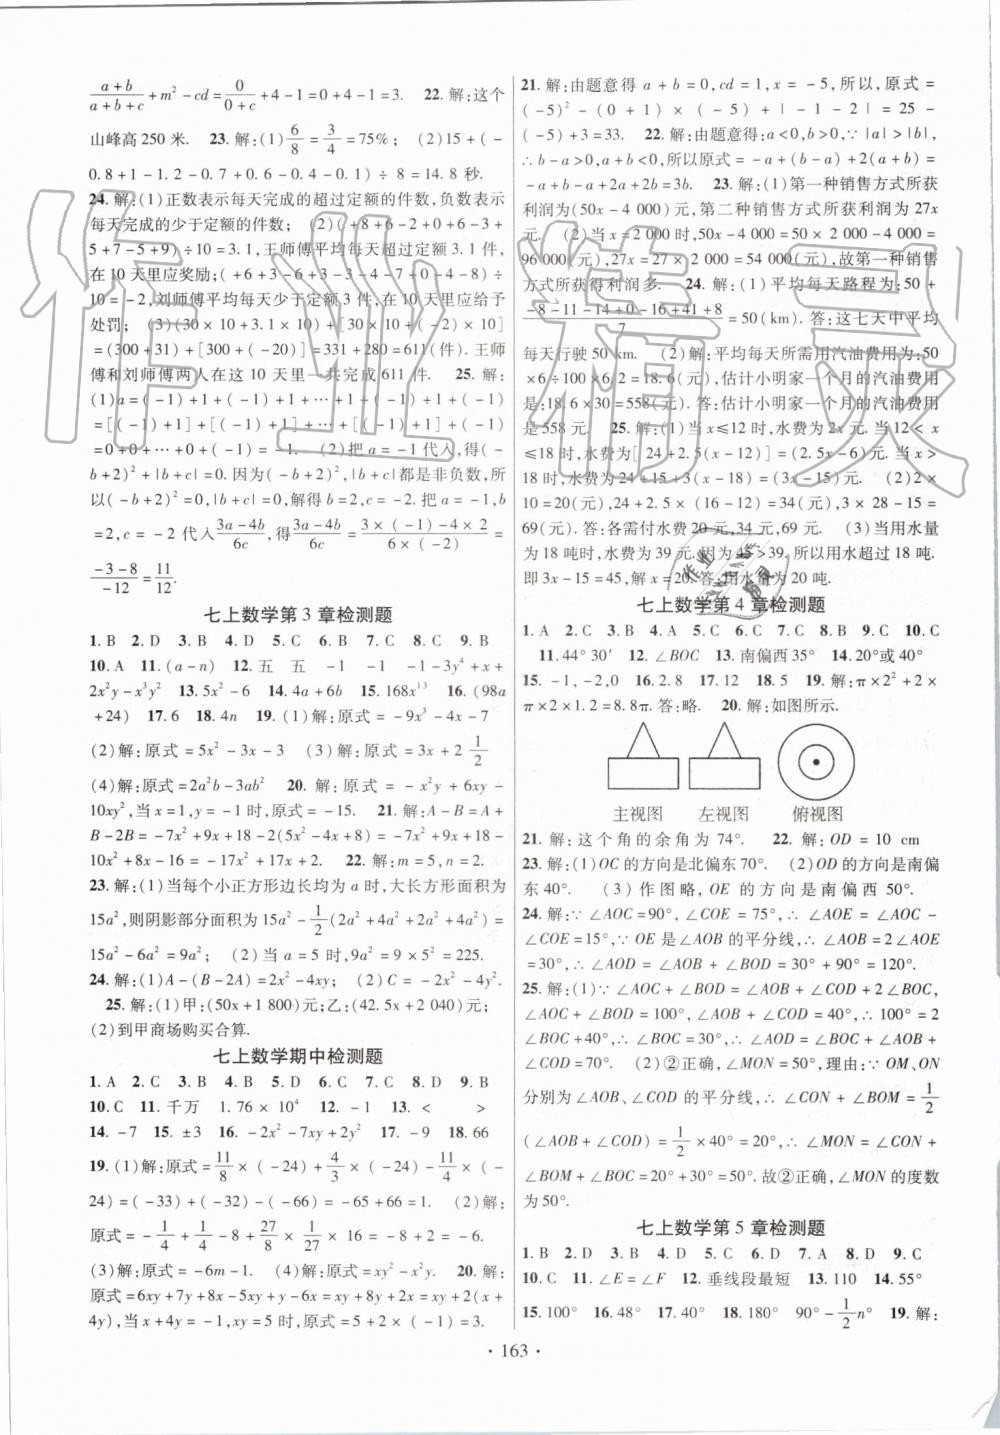 (a+b)/(a+b+c)+m²-cd=0/(0+c)+4-1=0+4-1=3. 22. 解:这个
山峰高250米. 23. 解:(1)6/8=3/4=75%; (2)15+(-
0.8+1-1.2-0.7+0.6-0.4-0.1)÷8=14.8秒.
24. 解:(1)正数表示每天完成的超过定额的件数,负数表示
每天完成的少于定额的件数; (2)(+8-2+0+6+3-
5+7-5+9)÷10=3.1,王师傅平均每天超过定额3.1件,
在10天里应奖励;(+6+3-5-2-4+7-0-4-8)÷
10=-2,刘师傅平均每天少于定额3件,在10天里应给予
处罚; (3)(30×10+3.1×10)+[30×10+(-2)×10]
=(300+31)+[300+(-20)]=331+280=611(件).王师
傅和刘师傅两人在这10天里一共完成611件. 25. 解:
(1)a=(-1)+1+(-1)+1+…+1+(-1)+1+(-1)
=[(-1)+1]+[(-1)+1]+…+[(-1)+1]+(-1)
=0+0+…+0+(-1)=-1. (2)把a=-1代入,得(-
b+2)²+|b+c|=0.因为(-b+2)²,|b+c|都是非负数,所
以(-b+2)²=0,|b+c|=0,解得b=2,c=-2.把a=-1,b
=2,c=-2代入(3a-4b)/6c,得(3a-4b)/6c=(3×(-1)-4×2)/(6×(-2))=
(-3-8)/(-12)=11/12.
七上数学第3章检测题
1. B 2. D 3. B 4. D 5. C 6. B 7. C 8. C 9. B
10. A 11. (a-n) 12. 五 五 -1 -1 -1-3y⁴+x+
2x²y-x³y² 13. 5x²-6 14. 4a+6b 15. 168x¹³ 16. (98a
+24) 17. 6 18. 4n 19. (1)解:原式=-9x³-4x-7
(2)解:原式=5x²-3x-3 (3)解:原式=3x+2 1/2
(4)解:原式=2a²b-3ab² 20. 解:原式=-x²y+6xy-
10xy²,当x=1,y=-1时,原式=-15. 21. 解:A-B=A+
B-2B=-7x²+9x+18-2(5x²-4x+8)=-7x²+9x+18-
10x²+8x-16=-17x²+17x+2 22. 解:m=5,n=2.
23. 解:(1)当每个小正方形边长均为a时,大长方形面积为
15a²,则阴影部分面积为15a²-1/2(2a²+4a²+2a²+4a²)=
15a²-6a²=9a²; (2)当a=5时,9a²=9×5²=225.
24. 解:(1)A-(B-2A)=2x²-4xy; (2)C=-2x²-4y².
25. 解:(1)甲:(50x+1 800)元;乙:(42.5x+2 040)元;
(2)到甲商场购买合算.
七上数学期中检测题
1. A 2. C 3. B 4. B 5. D 6. D 7. C 8. D 9. B
10. C 11. 千万 1.76×10⁴ 12. -1 13. < >
14. -7 15. ±3 16. -2x²-7xy+2y² 17. -9 18. 66
19. (1)解:原式=11/8×(-24)+4/3×(-24)-11/4×(-
24)=(-33)+(-32)-(-66)=-65+66=1. (2)解:
原式=-1/4+1/4-8+27/8×1/27×16=-8+2=-6.
(3)解:原式=-6m-1. (4)解:原式=xy²-x²y. 20. 解:
原式=6xy+7y+8x-5xy+y-6x=xy+2x+8y=xy+2(x+
4y),当x+4y=-1,xy=5时,原式=5+2×(-1)=3.
21. 解:由题意得a+b=0,cd=1,x=-5,所以,原式=
(-5)²-(0+1)×(-5)+|-1-2|=25-
(-5)+3=33. 22. 解:由题意得:a<0,b>0,∵|a|>|b|,
∴b-a>0,a+b<0,所以原式=-a+(b-a)+2(a+b)=
-a+b-a+2a+2b=3b. 23. 解:(1)第一种销售方式所获
利润为(50x-4 000)元,第二种销售方式所获利润为27x
元. (2)当x=2 000时,50x-4 000=50×2 000-4 000=
96 000(元),27x=27×2 000=54 000(元),故第一种销售
方式所获得利润多. 24. 解:(1)平均每天路程为:50+
(-8-11-14+0-16+41+8)/7=50(km).答:这七天中平均
每天行驶50 km. (2)解:平均每天所需用汽油费用为:50
×6÷100×6.2=18.6(元),估计小明家一个月的汽油费用
是:18.6×30=558(元).答:估计小明家一个月的汽油费用
是558元. 25. 解:(1)当x≤12时,水费为2x元.当12<
x≤18时,水费为[24+2.5(x-12)]=(2.5x-6)元.当x>
18时,水费为24+15+3(x-18)=(3x-15)元. (2)2×
10=20(元),24+2.5×(16-12)=34(元),3×28-15=
69(元).答:各需付水费20元,34元,69元. (3)当用水量
为18吨时,水费为39元.因为45>39,所以用水超过18吨.
即3x-15=45,解x=20.答:用水量为20吨.
七上数学第4章检测题
1. A 2. C 3. C 4. D 5. C 6. C 7. B 8. B 9. C 10. C
11. 44°30′ 12. ∠BOC 13. 南偏西35° 14. 20°或40°
15. -1,-2,0 16. 2.8 17. 12 18. 5 19. 解:π×2²+2×
π×2×1.2=8.8π.答:略. 20. 解:如图所示.
主视图 左视图 俯视图
21. 解:这个角的余角为74°. 22. 解:OD=10 cm
23. 解:(1)OC的方向是北偏东70°. (2)OD的方向是南偏
东40°. (3)作图略,OE的方向是南偏西50°.
24. 解:∵∠AOC=90°,∠COE=75°,∴∠AOE=∠AOC-
∠COE=15°,∵OE是∠AOB的平分线,∴∠AOB=2∠AOE
=30°,∴∠AOD=∠AOB+∠BOD=30°+90°=120°.
25. 解:(1)∵∠AOC+∠BOD=∠AOB+∠COD+2∠BOC,
∠AOC+∠BOD=100°,∠AOB+∠COD=40°,∴100°=2
∠BOC+40°,∴∠BOC=30°,∴∠AOD=∠BOC+∠AOB+
∠COD=70°. (2)②正确,∠MON=50°,理由:∵OM、ON
分别为∠AOB、∠COD的平分线,∴∠CON+∠BOM=1/2
(∠AOB+∠COD)=1/2×40°=20°,∴∠MON=∠CON+
∠BOM+∠BOC=20°+30°=50°.故②正确,∠MON的度数
为50°.
七上数学第5章检测题
1. B 2. B 3. D 4. D 5. C 6. D 7. A 8. D 9. C
10. C 11. ∠E=∠F 12. 垂线段最短 13. 110 14. 55°
15. 100° 16. 48° 17. 40° 18. 180° 90°-1/2n° 19. 解:
· 163 ·
作业精灵
作业精灵